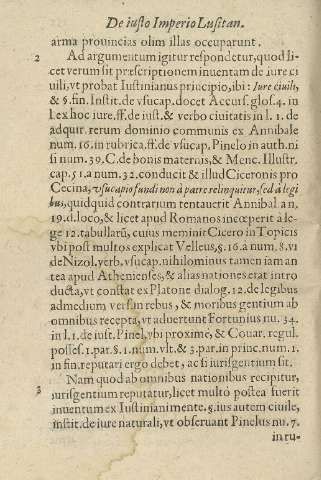 De iusto Imperio Lusitan.
arma prouincias olim illas occuparunt.
2 Ad argumentum igitur respondetur, quod li-
cet verum sit præscriptionem inuentam de iure ci
uili, vt probat Iustinianus principio, ibi: Iure ciuili,
& §. fin. Instit. de vsucap. docet Accurs. glos. 4. in
l. ex hoc iure. ff. de iust. & verbo ciuitatis in l. 1. de
adquir. rerum dominio communis ex Annibale
num. 16. in rubrica. ff. de vsucap. Pinelo in auth. ni
si num. 39. C. de bonis maternis, & Menc. Illustr.
cap. 51. a num. 32. conducit & illud Ciceronis pro
Cecina, vsucapio fundi non à patre relinquitur, sed à legi
bus, quidquid contrarium tentauerit Annibal a n,
19. d. loco, & licet apud Romanos incœperit à le-
ge 12. tabullarũ, cuius meminir Cicero in Topicis
vbi post multos explicat Velleus, §. 16. a num. 8. vi
de Nizol. verb. vsucap. nihilominus tamen iam an
tea apud Athenienses, & alias nationes erat intro
ducta, vt constat ex Platone dialog. 12. de legibus
ad medium versan rebus, & moribus gentium ab
omnibus recepta, vt aduertunt Fortunius nu. 34.
in l. 1. de iust. Pinel, vbi proximè, & Couar. regul.
posses. 1. par. §. 1. num. vlt. & 3. par. in princ. num. 1.
in fin. reputari ergo debet, ac si iuris gentium sit.
Nam quod ab omnibus nationibus recipitur,
3 iuris gentium reputatur, licet multò postea fuerit
inuentum ex Iustiniani mente. §. ius autem ciuile,
instit. de iure naturali, vt obseruant Pinelus nu. 7.
in ru-